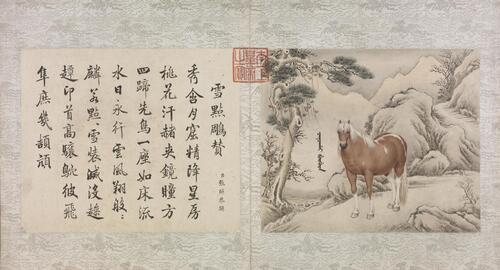 雪點鵰贊
秀含月窟精降星房
桃花汗赭夾鏡瞳方
四蹄先鳥一座如床流
水日永行雲風翔般〻
麟若點〻雪裝滅沒
印首高驤彼飛
隼庶幾頡頏